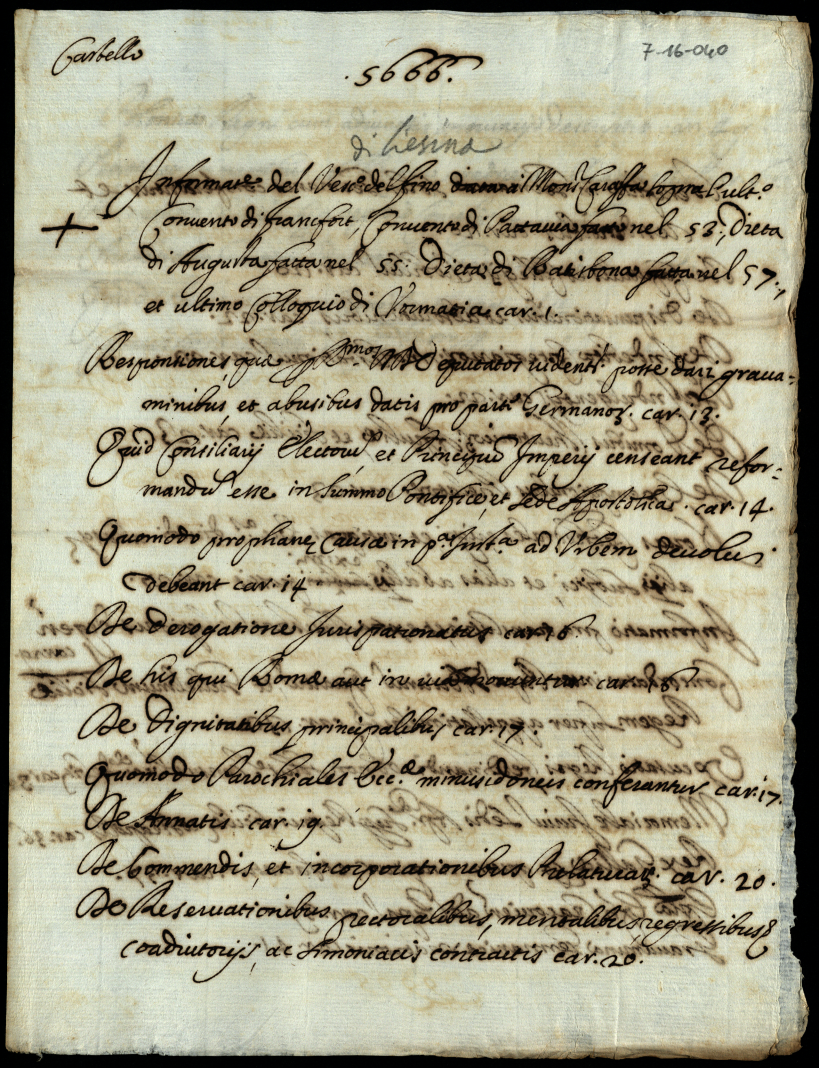 Castello
7-16-040
.5666.
di Liesina
Informat.e del Vesc.o delfino data a Mons.r Caraffa sopra l'ult.o
+ Convento di francfort, Convento di Pattavia fatto nel 53; Dieta
di Augusta fatta nel 55: Dieta di Ratisbona fatta nel 57.,
et ultimo Colloquio di Vormatia car. 1.
Responsiones, quæ R.mos Deputatos uident.r posse dari graua=
minibus, et abusibus datis pro parte Germanoꝝ. car. 13.
Quid Consiliarij Electorū et Principū Imperij censeant refor=
mandū esse in Summo Pontifice, et Sede Apostolica. car. 14.
Quomodo prophanę Causæ in p.a Inst.a ad Vrbem deuolui
debeant car. 14
De derogatione Jurispatronatus car. 16
De his qui Romæ aut in via moriuntur car. 16
De Dignitatibus principalibus car. 17.
Quomodo Parochiales Ecc.æ minus idoneis conferantur car. 17.
De Annatis car. 19.
De Commendis, et incorporationibus Prelaturaꝝ. car. 20.
De Reseruationibus pectoralibus, mentalibus regressibus &
coadiutorijs, ac Simoniacis contractis car. 20.